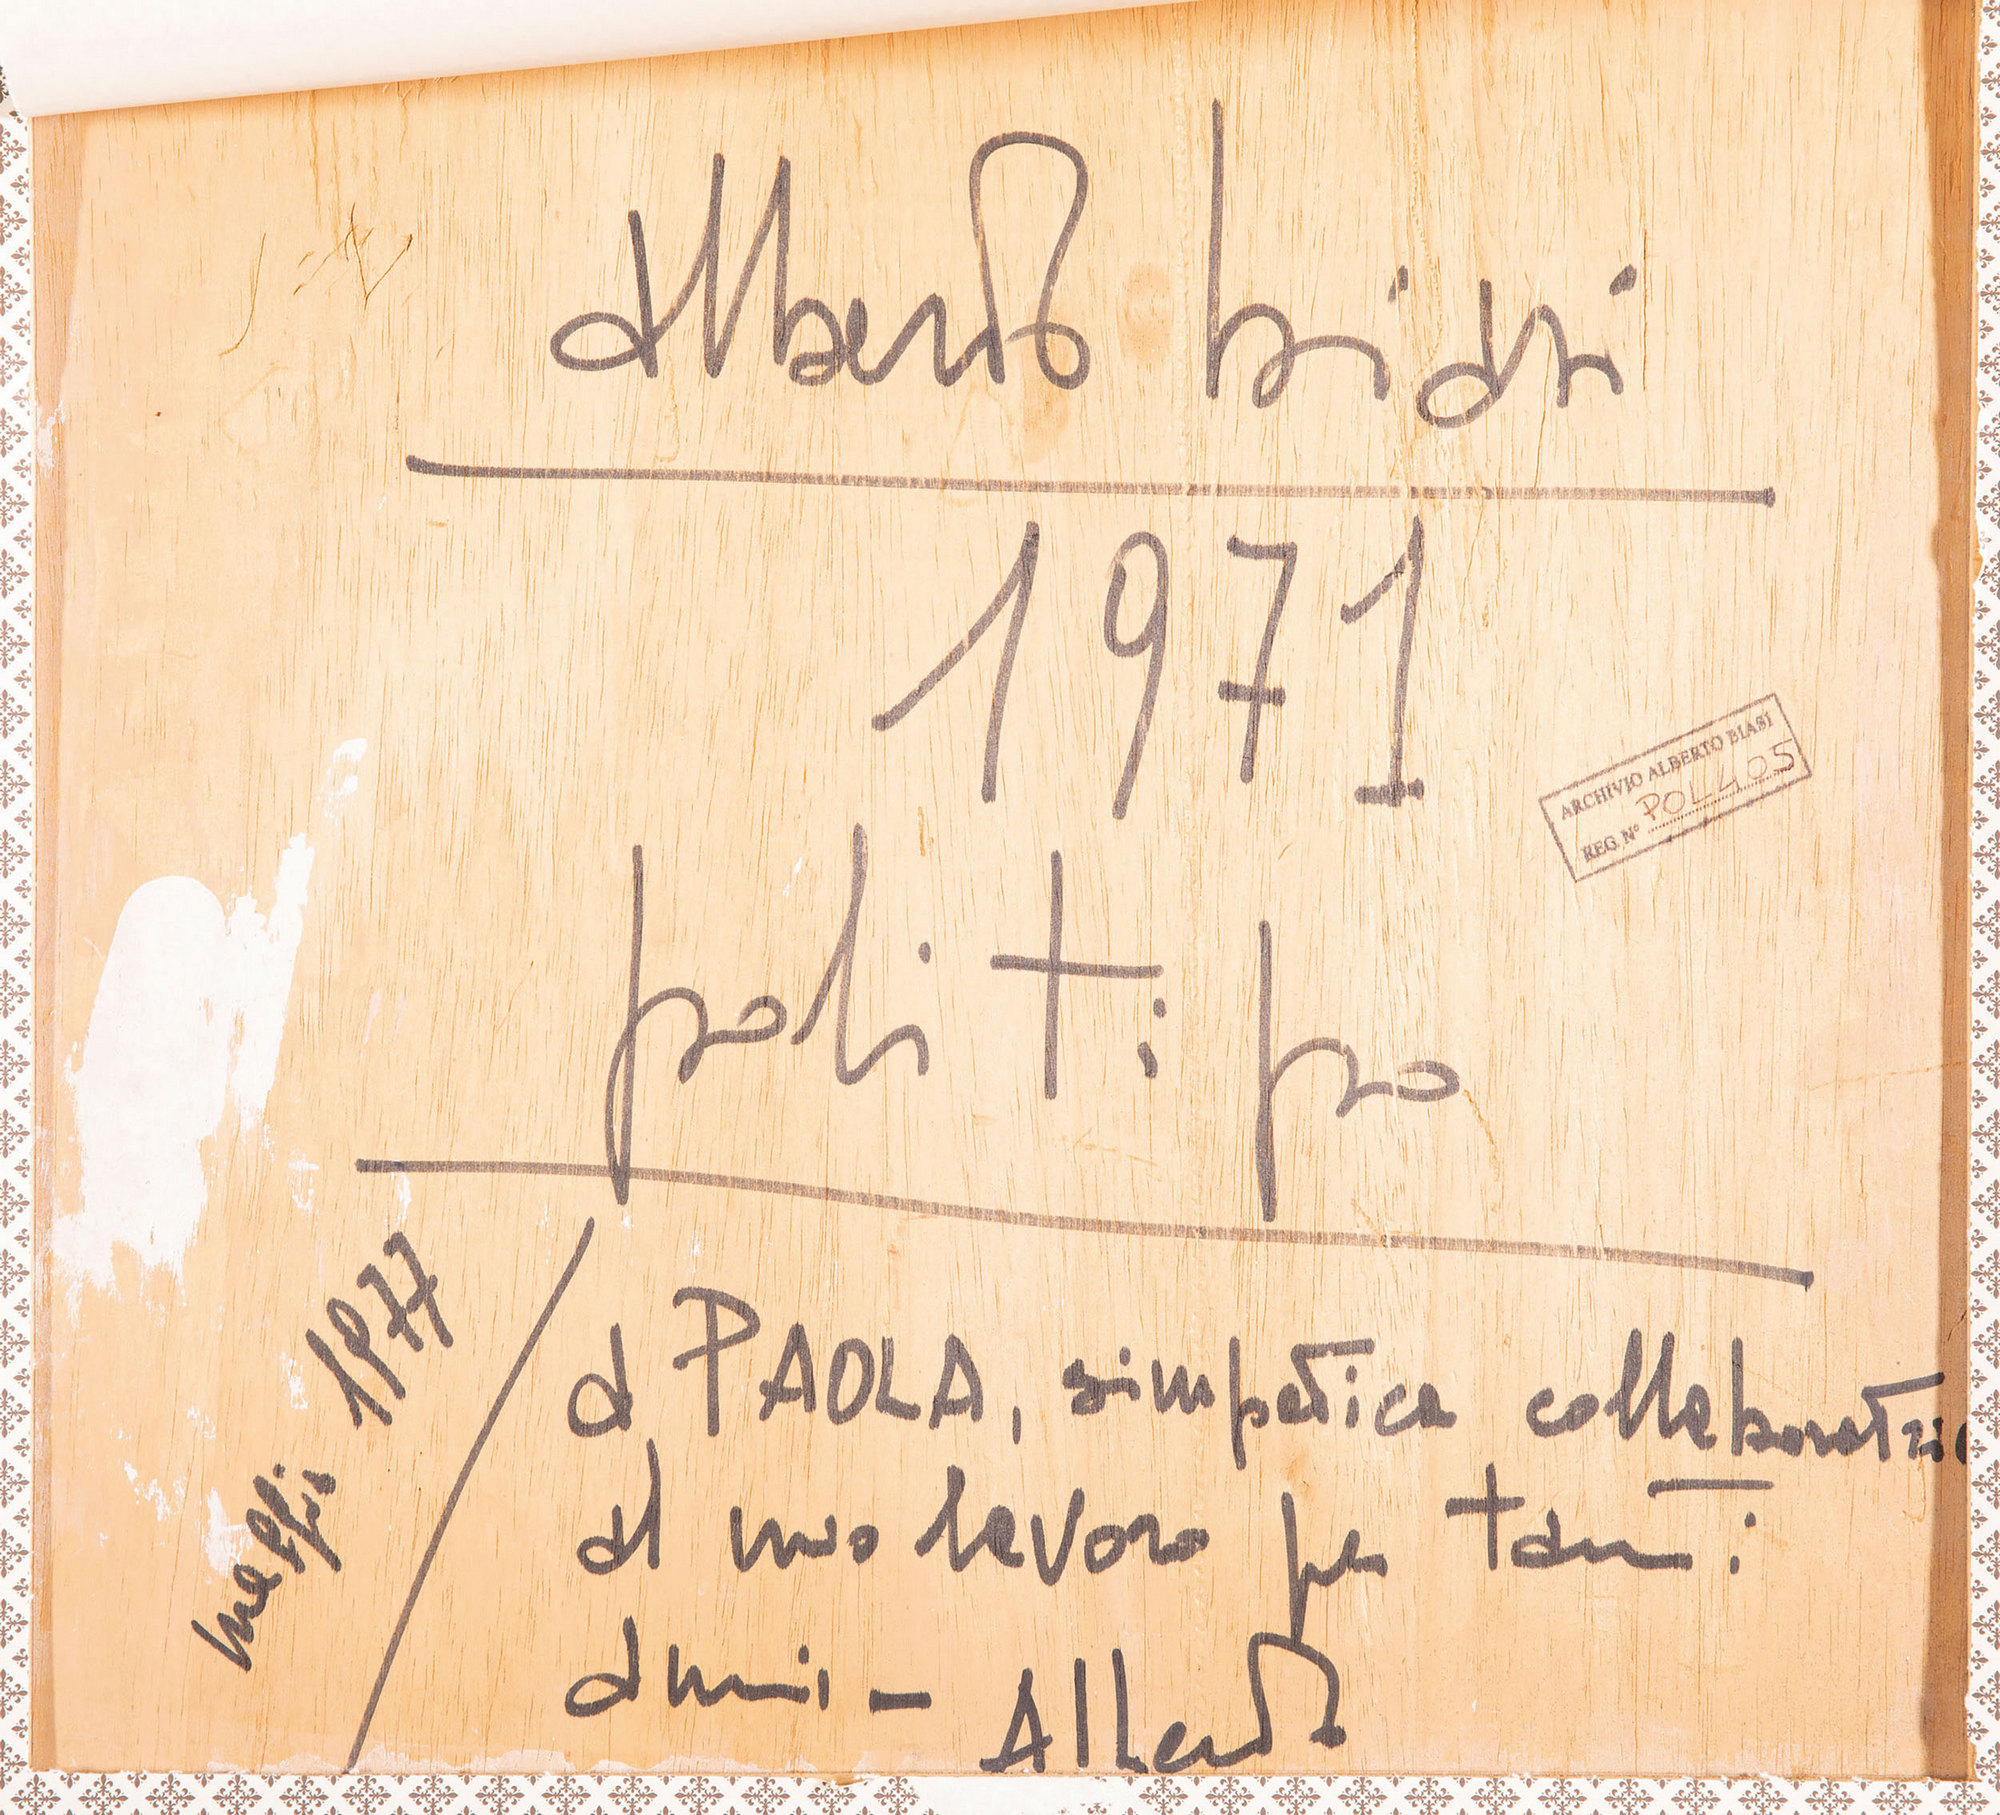 alberto biasi
1971
ARCHIVIO ALBERTO BIASI
REG. N° POL405
politipo
maggio 1977
a PAOLA, simpatica collaboratrice
al mio lavoro per tanti
anni - Alberto